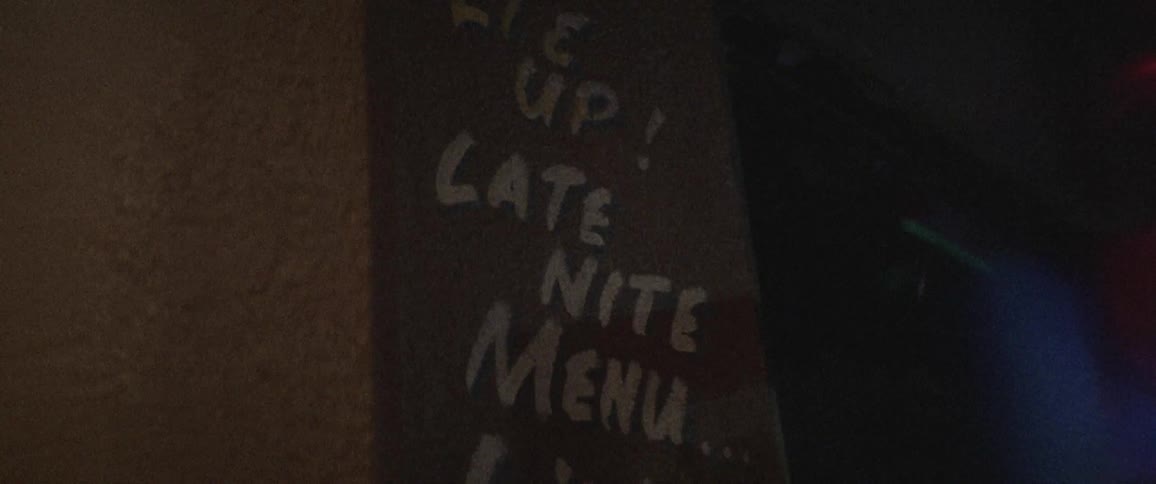 UP!
LATE
NITE
MENU...